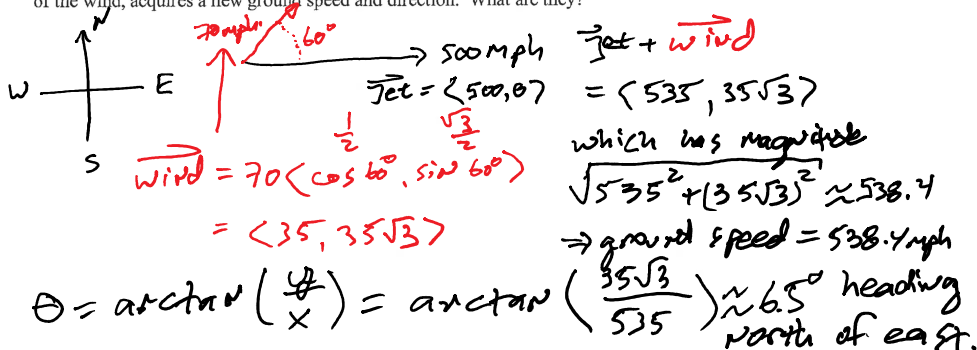 of the wind, acquires a new ground speed and direction. What are they?
N
W E
S
70 mph
60°
500 mph
Jet = ⟨500, 0⟩
wind = 70⟨cos 60°, sin 60°⟩
1/2 √3/2
= ⟨35, 35√3⟩
Jet + wind
= ⟨535, 35√3⟩
which has magnitude
√(535² + (35√3)²) ≈ 538.4
⇒ ground speed = 538.4 mph
θ = arctan(y/x) = arctan(35√3/535) ≈ 6.5° heading
north of east.